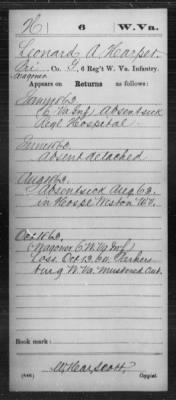 H | 6 | W. Va.
Leonard A. Harper
Pri Co. G, 6 Reg't W. Va. Infantry.
Wagoner
Appears on Returns as follows:
(6 Va Inf) Absent sick
Regl Hospital
Absent detached
Absent sick Aug. 62.
in Hosp. Weston W.V.
Oct 1862,
(Wagoner 6 W. Va Inf)
Loss. Oct 13. Parkers
burg W. Va. Mustered Out.
Book mark:
(446)
Copyist.